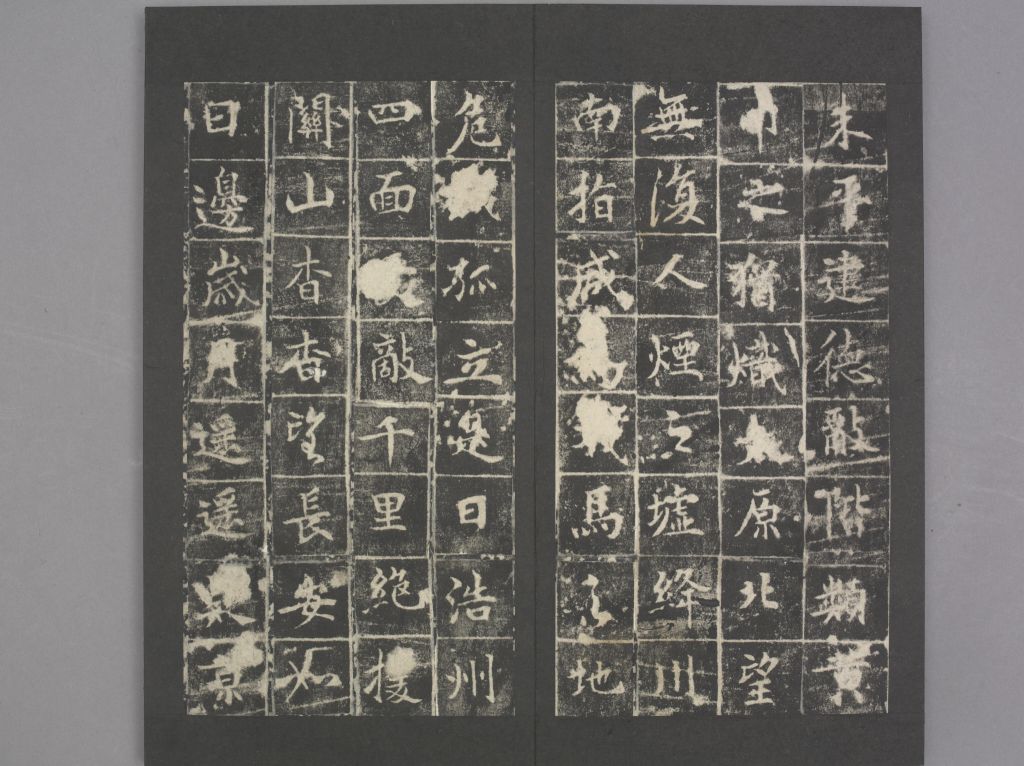 未平建德散階類黃
巾之猶熾太原北望
無復人煙之墟絳川
南指咸為戎馬之地
危城孤立浥日浩州
四面皆敵千里絕援
關山杳杳望長安如
日邊歲月遥遥畏京